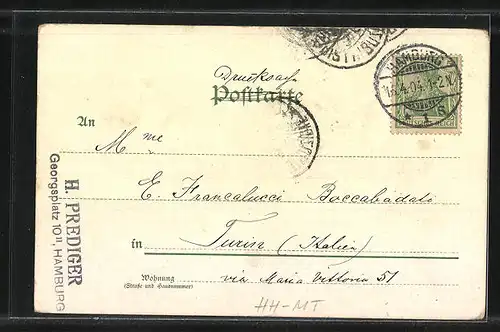 Drucksache
Postkarte
HAMBURG
16.4.04. 1-2 N.
* 1 S
An
Mme
E. Francalucci Boccabadati
in Turin (Italien)
Wohnung
(Straße und Hausnummer)
via Maria Vittoria 51
HH-MT
H. PREDIGER
Georgsplatz 10 II, HAMBURG